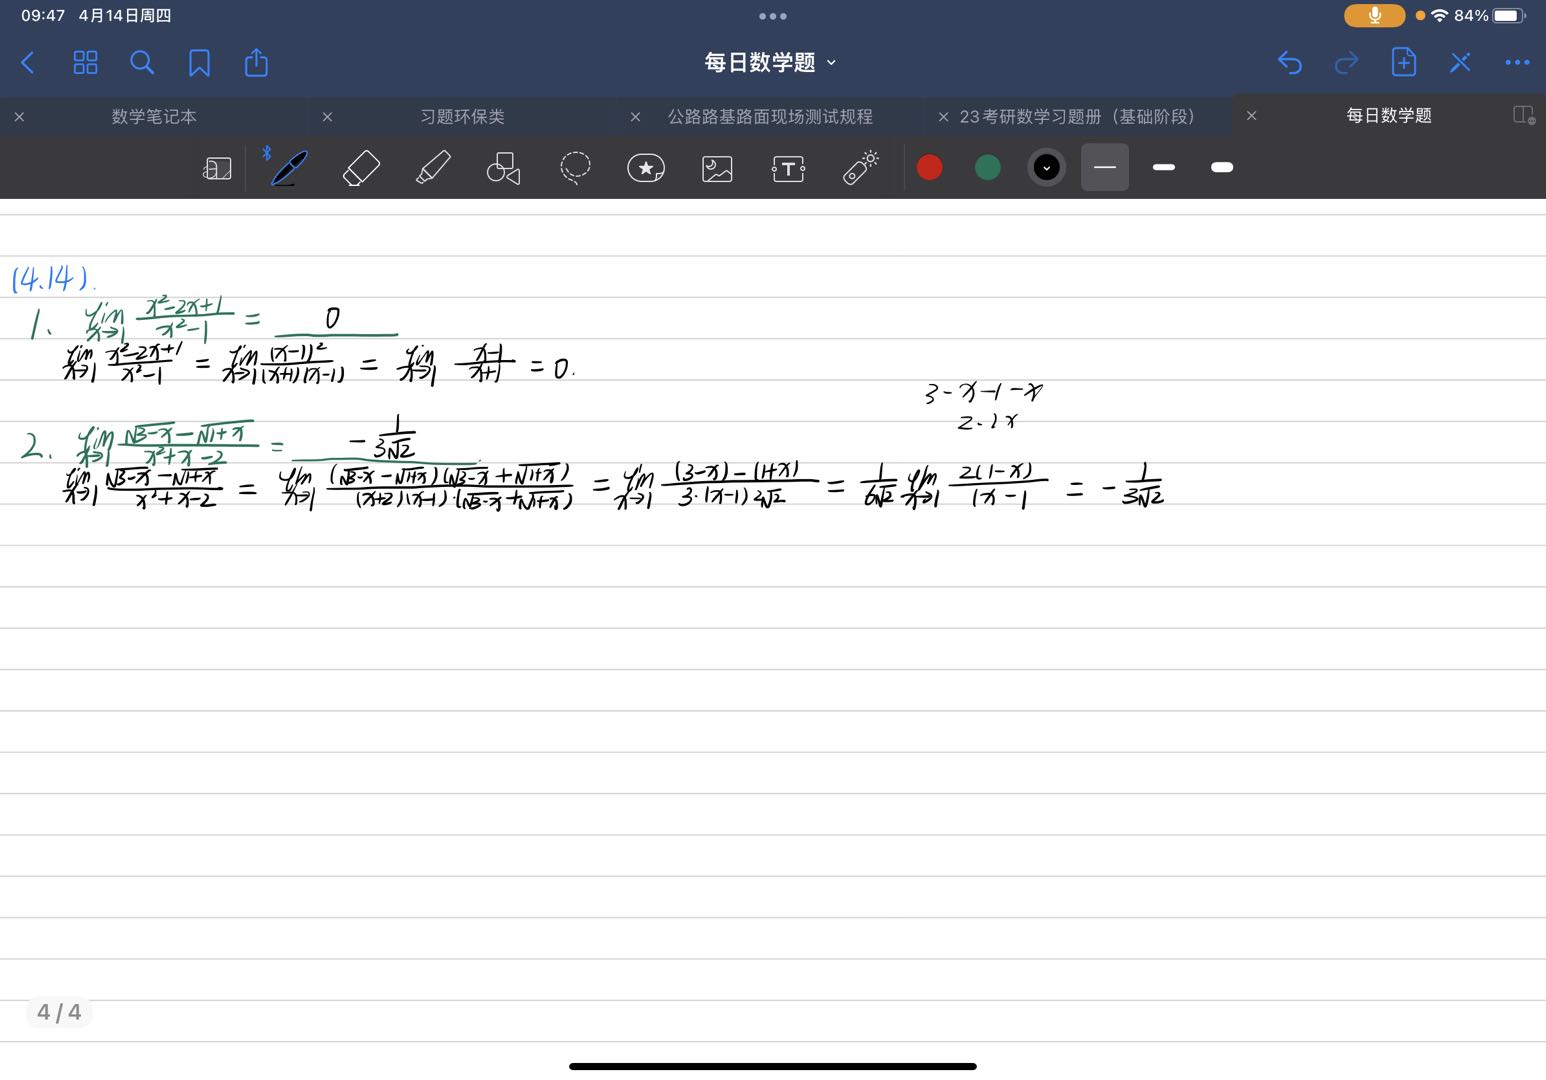 09:47 4月14日周四
84%
每日数学题
数学笔记本
习题环保类
公路路基路面现场测试规程
23考研数学习题册（基础阶段）
每日数学题
T
(4.14).
1、 lim x→1 (x²-2x+1)/(x²-1) = 0
lim x→1 (x²-2x+1)/(x²-1) = lim x→1 (x-1)²/((x+1)(x-1)) = lim x→1 (x-1)/(x+1) = 0.
3-x-1-x
2.2x
2. lim x→1 (√(3-x)-√(1+x))/(x²+x-2) = -1/(3√2)
lim x→1 (√(3-x)-√(1+x))/(x²+x-2) = lim x→1 ((√(3-x)-√(1+x))(√(3-x)+√(1+x)))/((x+2)(x-1)·(√(3-x)+√(1+x))) = lim x→1 ((3-x)-(1+x))/(3·(x-1)2√2) = 1/(6√2) lim x→1 2(1-x)/(x-1 = -1/(3√2)
4/4